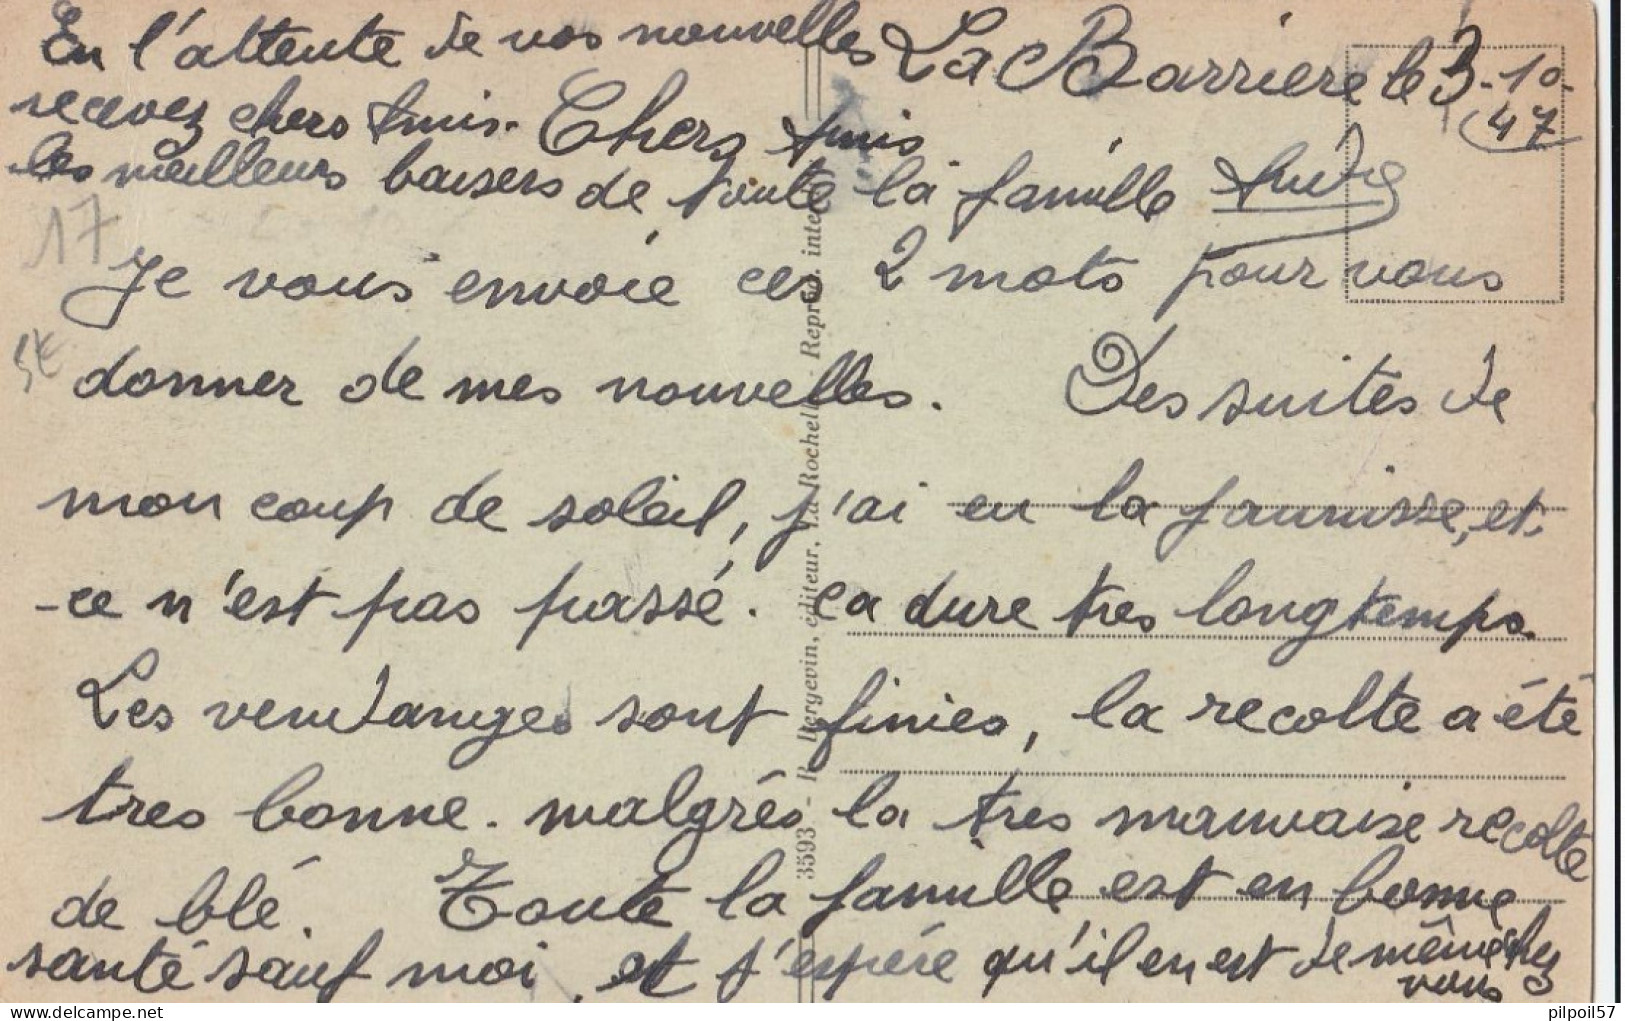 La Barriere le 3-10-
47
Chers Amis
Je vous envoie ces 2 mots pour vous
donner de mes nouvelles. Des suites de
mon coup de soleil, j'ai eu la jaunisse, et
ce n'est pas passé. ca dure tres longtemps.
Les vendanges sont finies, la recolte a été
tres bonne. malgrés la tres mauvaise recolte
de blé. Toute la famille est en bonne
santé sauf moi, et j'espére qu'il en est de même chez
vous
En l'attente de vos nouvelles
recevez chers Amis.
les meilleurs baisers de toute la famille André
17
5€
3593 - R. Bergevin, éditeur, La Rochelle - Reprod. inter
pilpoil57
delcampe.net